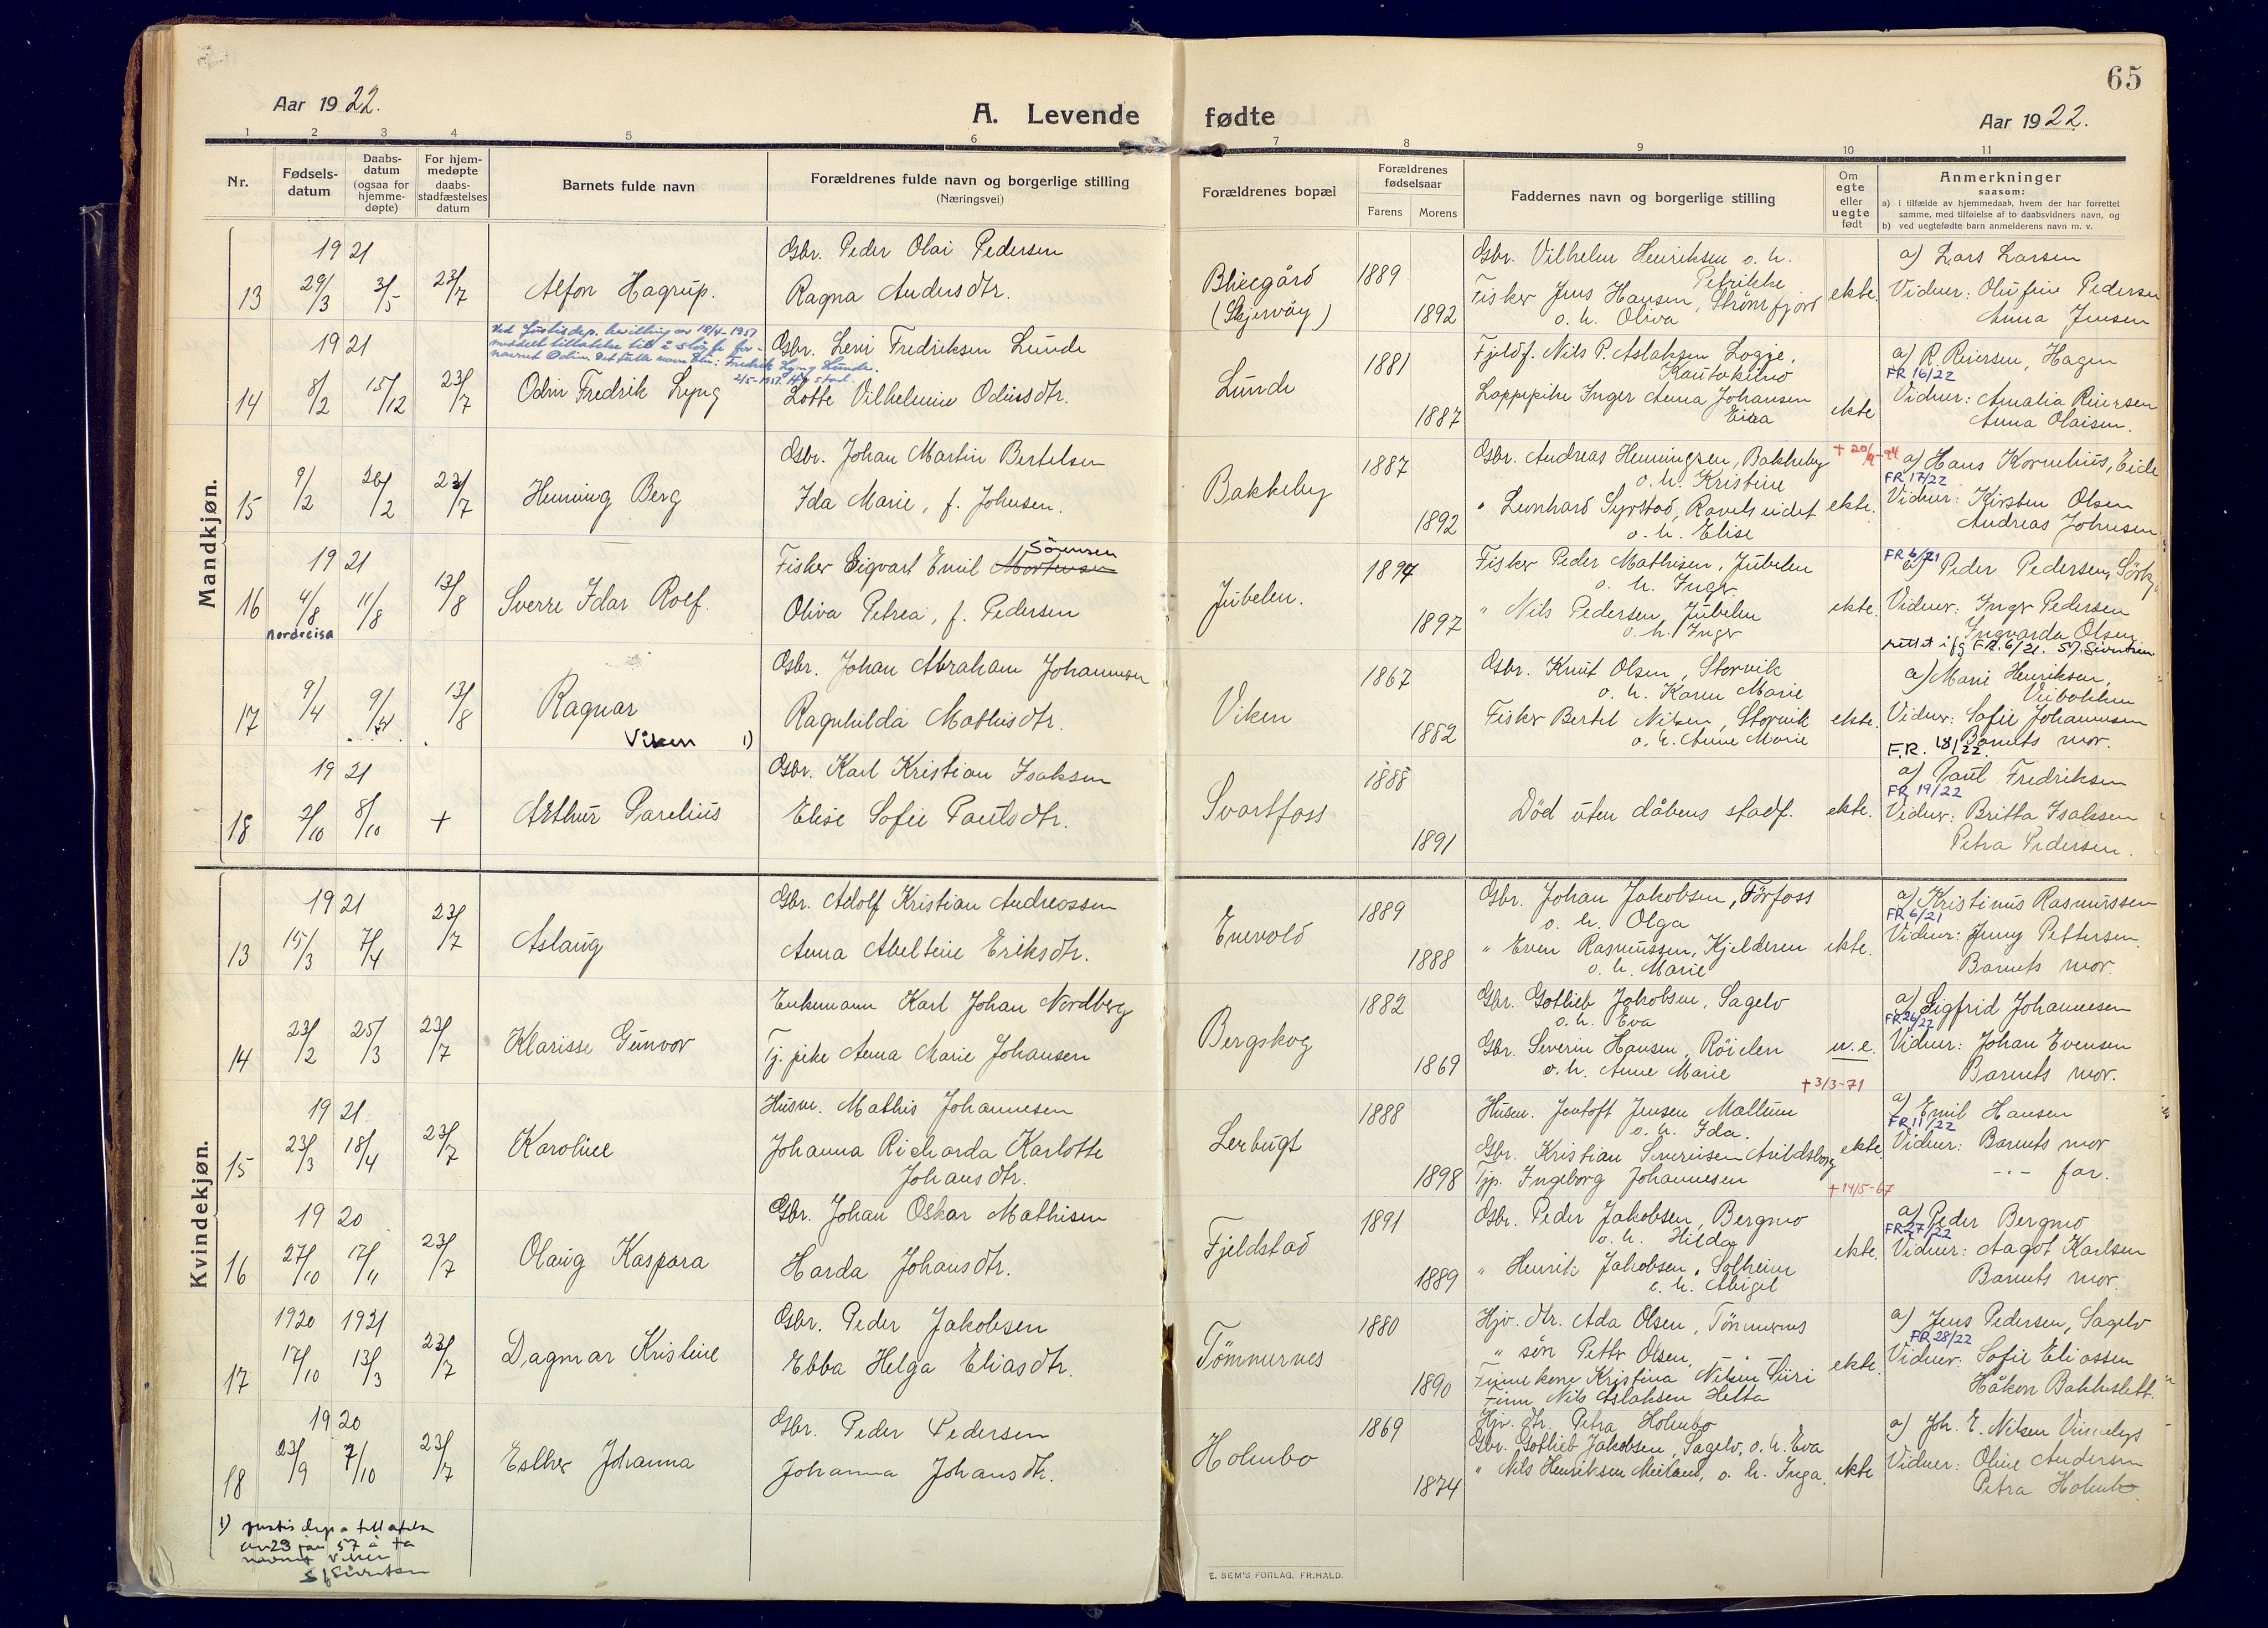 65
Aar 1922.
A. Levende fødte
Aar 1922.
1 2 3 4 5 6 7 8 9 10 11
Nr.
Fødsels-
datum
Daabs-
datum
(ogsaa for
hjemme-
døpte)
For hjem-
medøpte
daabs-
stadfæstelses
datum
Barnets fulde navn
Forældrenes fulde navn og borgerlige stilling
(Næringsvei)
Forældrenes bopæl
Forældrenes
fødselsaar
Farens Morens
Faddernes navn og borgerlige stilling
Om
egte
eller
uegte
født
Anmerkninger
saasom:
a) i tilfælde av hjemmedaab, hvem der har forrettet
samme, med tilføielse af to daabsvidners navn, og
b) ved uegtefødte barn anmelderens navn m. v.
Mandkjøn.
1921
13 29/3 3/5 23/7 Alfon Hagrup.
Gbr. Peder Olai Pedersen
Ragna Andersdtr.
(Skjervøy)
1889
1892
Gbr. Vilhelm Henriksen o. h.
Petrikke
Fisker Jens Hansen, Strømfjord
o. h. Oliva
ekte.
a) Lars Larsen
Vidner: Olufine Pedersen
Anna Jensen
1921
Ved Justisdep. bevilling av 18/4-1957
meddelt tillatelse til å sløyfe for-
navnet Odin. Det fulle navn blir: Fredrik Lyng Lunde.
2/5-1957.
14 8/2 15/12 23/7 Odin Fredrik Lyng
Gbr. Levi Fredriksen Lunde
Lotte Vilhelmine Odinsdtr.
Lunde
1881
1887
Fjeldf. Nils P. Aslaksen Logje,
Kautokeino
Lappepike Inger Anna Johansen
Eira
ekte
a) R. Reiersen, Hagen
FR 16/22
Vidner: Amalia Reiersen
Anna Olaisen.
15 9/2 26/2 23/7 Henning Berg
Gbr. Johan Martin Bertelsen
Ida Marie, f. Johnsen.
Bakkeby
1887
1892
Gbr. Andreas Henningsen, Bakkeby
o. h. Kristine
" Leonhard Syrstad, Ravelseidet
o. h. Elise
ekte.
a) Hans Kornelius, Eide
FR 17/22
Vidner: Kirsten Olsen
Andreas Johnsen
1921
16 4/8 11/8 13/8 Sverre Idar Rolf.
Nordreisa
Sörensen
Fisker Sigvart Emil Mortensen
Oliva Petrea, f. Pedersen
Jubelen.
1894
1897
Fisker Peder Mathisen, Jubelen
o. h. Inger
" Nils Pedersen, Jubelen
o. h. Inger
ekte.
FR 6/21
a) Peder Pedersen,
Vidner: Inger Pedersen
Ingvarda Olsen
rettet ifg FR. 6/21.
17 9/4 9/4 13/8 Ragnar
Viken 1)
Gbr. Johan Abraham Johannesen
Ragnhilda Mathisdtr.
Viken
1867
1882
Gbr. Knut Olsen, Storvik
o. h. Karen Marie
Fisker Bertel Nilsen, Storvik
o. h. Anne Marie
ekte.
a) Marie Henriksen,
Veibakken
Vidner: Sofie Johannesen
Barnets mor.
F.R. 18/22
1921
18 2/10 8/10 + Arthur Parelius
Gbr. Karl Kristian Isaksen
Elise Sofie Paulsdtr.
Svartfoss
1888
1891
Död uten dåbens stadf.
ekte.
a) Paul Fredriksen
FR 19/22
Vidner: Britta Isaksen
Petra Pedersen.
Kvindekjøn.
1921
13 15/3 7/4 23/7 Aslaug
Gbr. Adolf Kristian Andreassen
Anna Abeltine Eriksdtr.
Enevold
1889
1888
Gbr. Johan Jakobsen, Törfoss
o. h. Olga
" Even Rasmussen, Kjelderen
o. h. Marie
ekte.
a) Kristinus Rasmussen
FR 6/21
Vidner: Jenny Pettersen.
Barnets mor.
14 23/2 25/3 23/7 Klarisse Gunvor
Enkemann Karl Johan Nordberg
Tj. pike Anna Marie Johansen
Bergskog
1882
1869
Gbr. Gotlieb Jakobsen, Sagelv
o. h. Eva
Gbr. Severin Hansen, Röielen
o. h. Anne Marie
u. e.
+3/3-71
a) Sigfrid Johannesen
FR 26/22
Vidner: Johan Evensen
Barnets mor.
1921
15 23/3 18/4 23/7 Karoline
Husm. Mathis Johannesen
Johanna Richarda Karlotte
Johansdtr.
Lerbugt
1888
1898
Husm. Jentoft Jensen Mollum
o. h. Ida.
Gbr. Kristian Severinsen Avildsborg
Tjp. Ingeborg Johannesen
ekte.
+14/5-67
a) Emil Hansen
FR 11/22
Vidner: Barnets mor
-"- far.
1920
16 27/10 17/11 23/7 Olaug Kaspara
Gbr. Johan Oskar Mathisen
Harda Johansdtr.
Fjeldstad
1891
1889
Gbr. Peder Jakobsen, Bergmo
o. h. Hilda
" Henrik Jakobsen, Solheim
o. h. Abigel
ekte.
a) Peder Bergmo
FR 27/22
Vidner: Aagot Karlsen
Barnets mor.
1920 1921
17 17/10 13/3 23/7 Dagmar Kristine
Gbr. Peder Jakobsen
Ebba Helga Eliasdtr.
Tömmernes
1880
1890
Hjv. dtr. Ada Olsen, Tömmernes
" sön Petter Olsen, - " -
Finnekone Kristina Nilsen Siiri
Finn Nils Aslaksen Hetta
ekte.
a) Jens Pedersen, Sagelv
FR 28/22
Vidner: Sofie Eliassen
Håkon Bakkeslett.
1920
18 23/9 7/10 23/7 Esther Johanna
Gbr. Peder Pedersen
Johanna Johansdtr.
Holmbo
1869
1874
Hjv. dtr. Petra Holmbo
Gbr. Gotlieb Jakobsen, Sagelv, o. h. Eva
" Nils Henriksen Meiland, o. h. Inga.
ekte
a) Joh. E. Nilsen
Vidner: Oline Andersen
Petra Holmbo.
1) Justisdep. tillatelse
av 23 jan 57 å ta
navnet Viken
E. SEM'S FORLAG, FR.HALD.